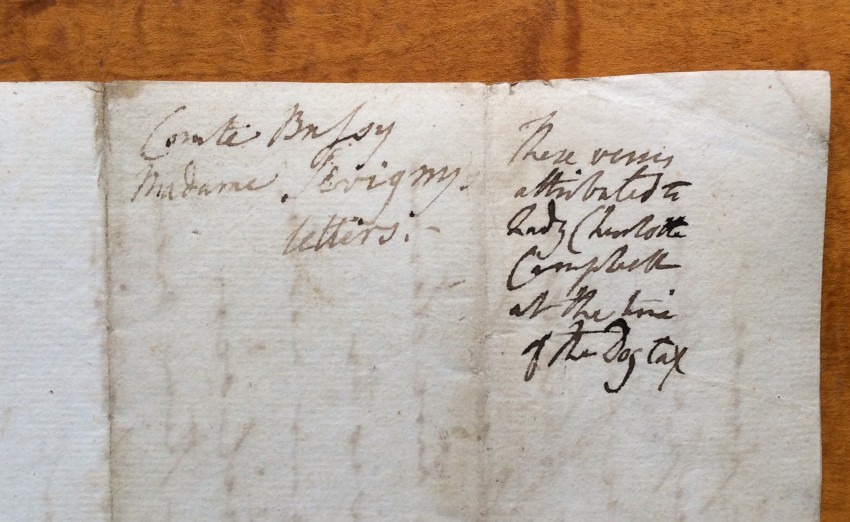 Comte Bussy
Madame Sevigny.
letters:-
These verses
attributed to
Lady Charlotte
Campbell
at the time
of the Dog tax